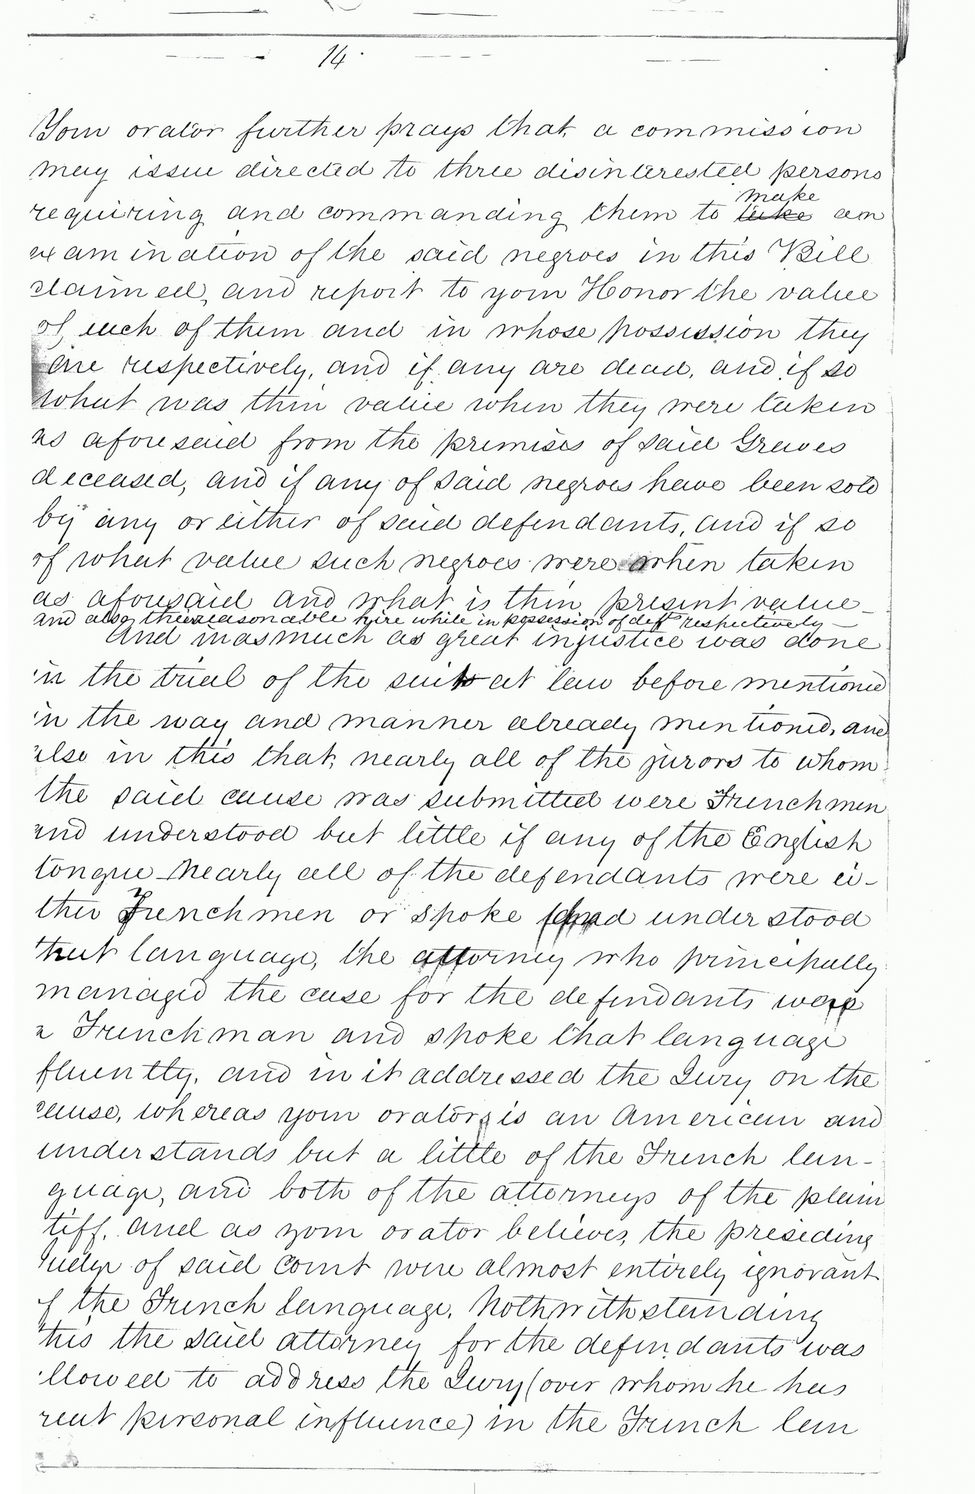 14.
Your orator further prays that a commission
may issue directed to three disinterested persons
make
requiring and commanding them to take an
examination of the said negroes in this Bill
claimed, and report to your Honor the value
of each of them and in whose possession they
are respectively, and if any are dead, and if so
what was their value when they were taken
as aforesaid from the premises of said Graves
deceased, and if any of said negroes have been sold
by any or either of said defendants, and if so
of what value such negroes were when taken
as aforesaid and what is their present value
and also the reasonable hire while in possession of deft respectively
And inasmuch as great injustice was done
in the trial of the suit at law before mentioned
in the way and manner already mentioned, and
also in this that, nearly all of the jurors to whom
the said cause was submitted were Frenchmen
and understood but little if any of the English
tongue - Nearly all of the defendants were ei-
ther Frenchmen or spoke and understood
that language, the attorney who principally
managed the case for the defendants was
a Frenchman and spoke that language
fluently, and in it addressed the Jury on the
cause, whereas your orator is an American and
understands but a little of the French lan-
guage, and both of the attorneys of the plain
tiff, and as your orator believes, the presiding
Judge of said Court were almost entirely ignorant
of the French language. Nothwithstanding
this the said attorney for the defendants was
allowed to address the Jury (over whom he has
great personal influence) in the French lan